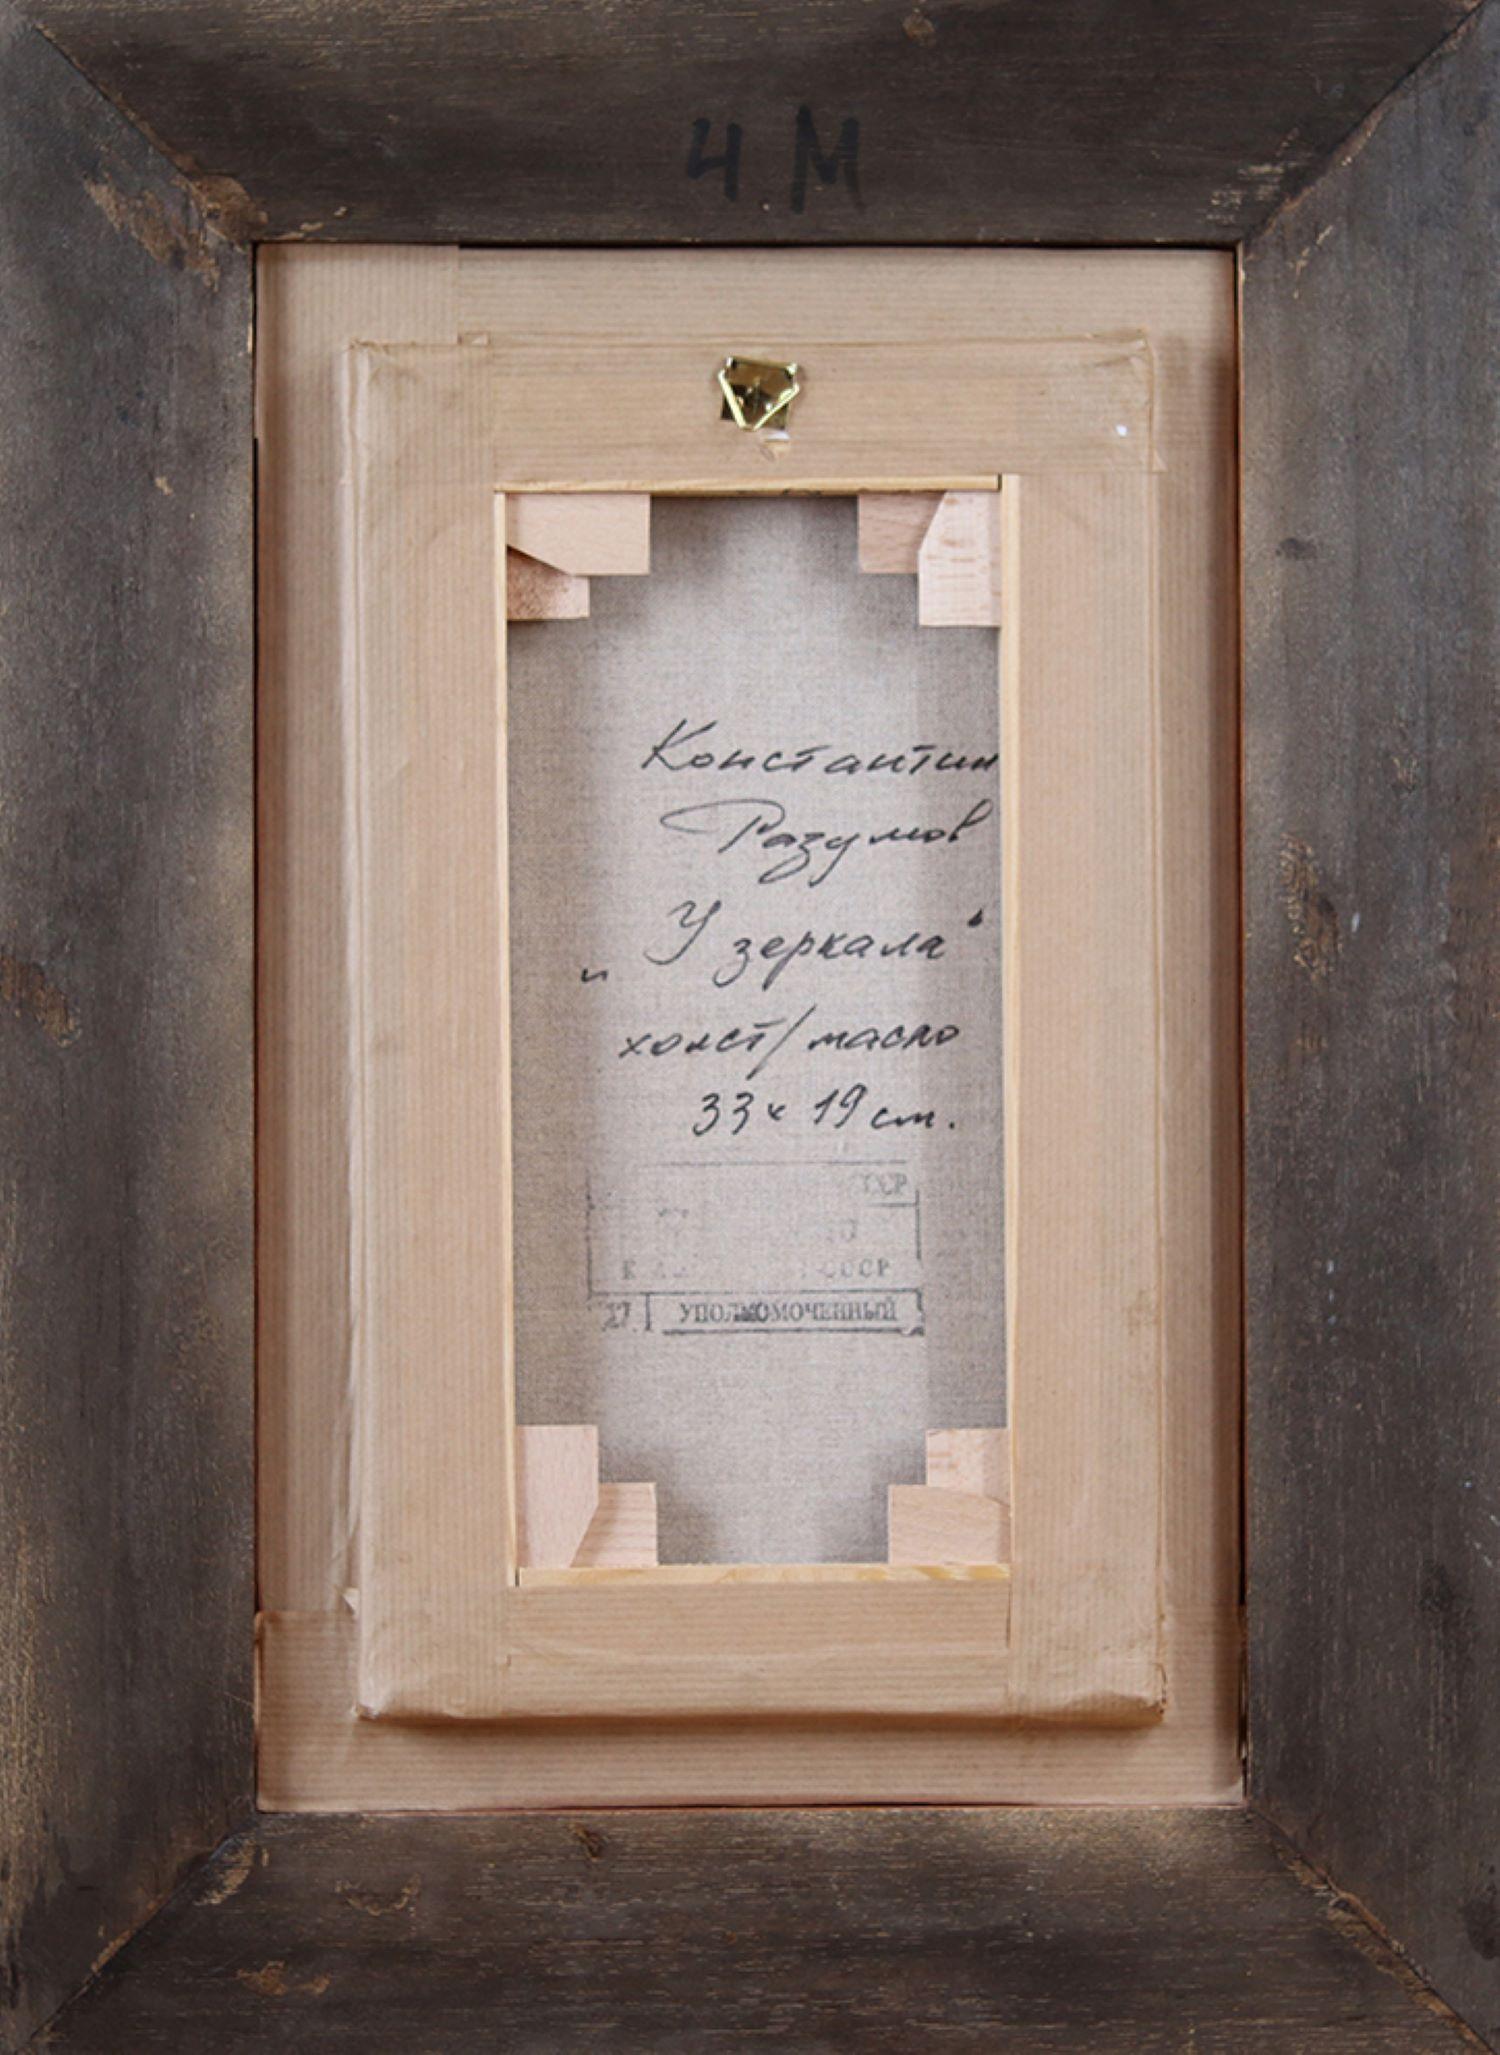 Ч.М
Константин
Разумов
„У зеркала“
холст/масло
33 х 19 см.
СССР
17 УПОЛНОМОЧЕННЫЙ